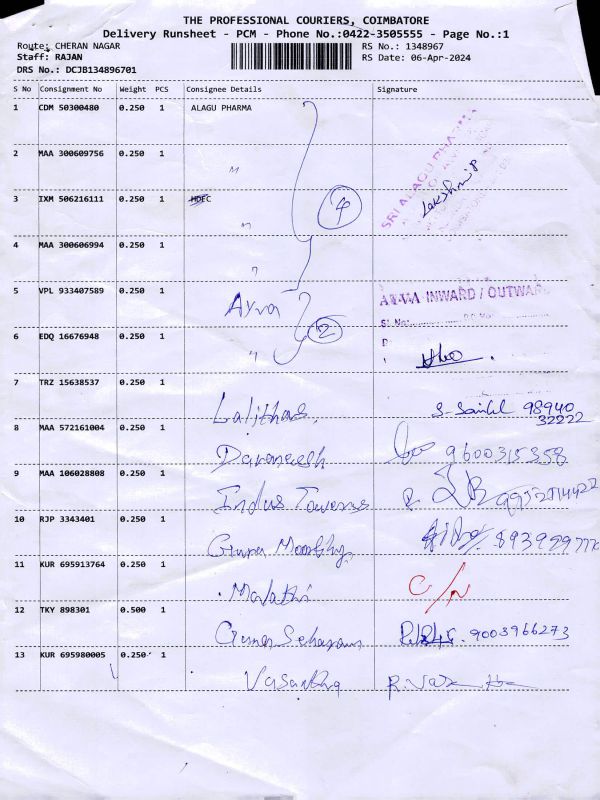 THE PROFESSIONAL COURIERS, COIMBATORE
Delivery Runsheet - PCM - Phone No.:0422-3505555 - Page No.:1
Route: CHERAN NAGAR RS No.: 1348967
Staff: RAJAN RS Date: 06-Apr-2024
DRS No.: DCJB134896701
S No Consignment No Weight PCS Consignee Details Signature
1 CDM 50300480 0.250 1 ALAGU PHARMA
SRI ALAGU PHARMA
2 MAA 300609756 0.250 1 "
3 IXM 506216111 0.250 1 HDFC " 4 Lakshmi
4 MAA 300606994 0.250 1 "
5 VPL 933407589 0.250 1 Ayva INWARD / OUTWAR
Sl. No:
6 EDQ 16676948 0.250 1 " 2
7 TRZ 15638537 0.250 1 Lalithas. 98940
32222
8 MAA 572161004 0.250 1 9600315358
9 MAA 106028808 0.250 1 Indus Towers
10 RJP 3343401 0.250 1 Guru Moorthy
11 KUR 695913764 0.250 1 Malathi C/N
12 TKY 898301 0.500 1 9003966273
13 KUR 695980005 0.250 1 Vasantha